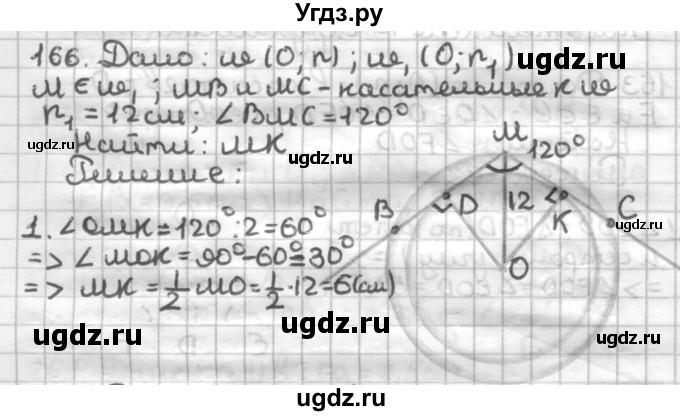 Угдз.ру
166. Дано: ω (O; r); ω₁ (O; r₁)
M ∈ ω₁; MB и MC - касательные к ω
r₁ = 12 см; ∠BMC = 120°
ugdz.ru Найти: MK ugdz.ru
Решение:
M
120°
B
D
12
K
C
O
1. ∠OMK = 120°:2 = 60°
=> ∠MOK = 90°-60° = 30°
=> MK = 1/2 MO = 1/2 · 12 = 6 (см)
ugdz.ru ugdz.ru ugdz.ru
ugdz.ru
ugdz.ru